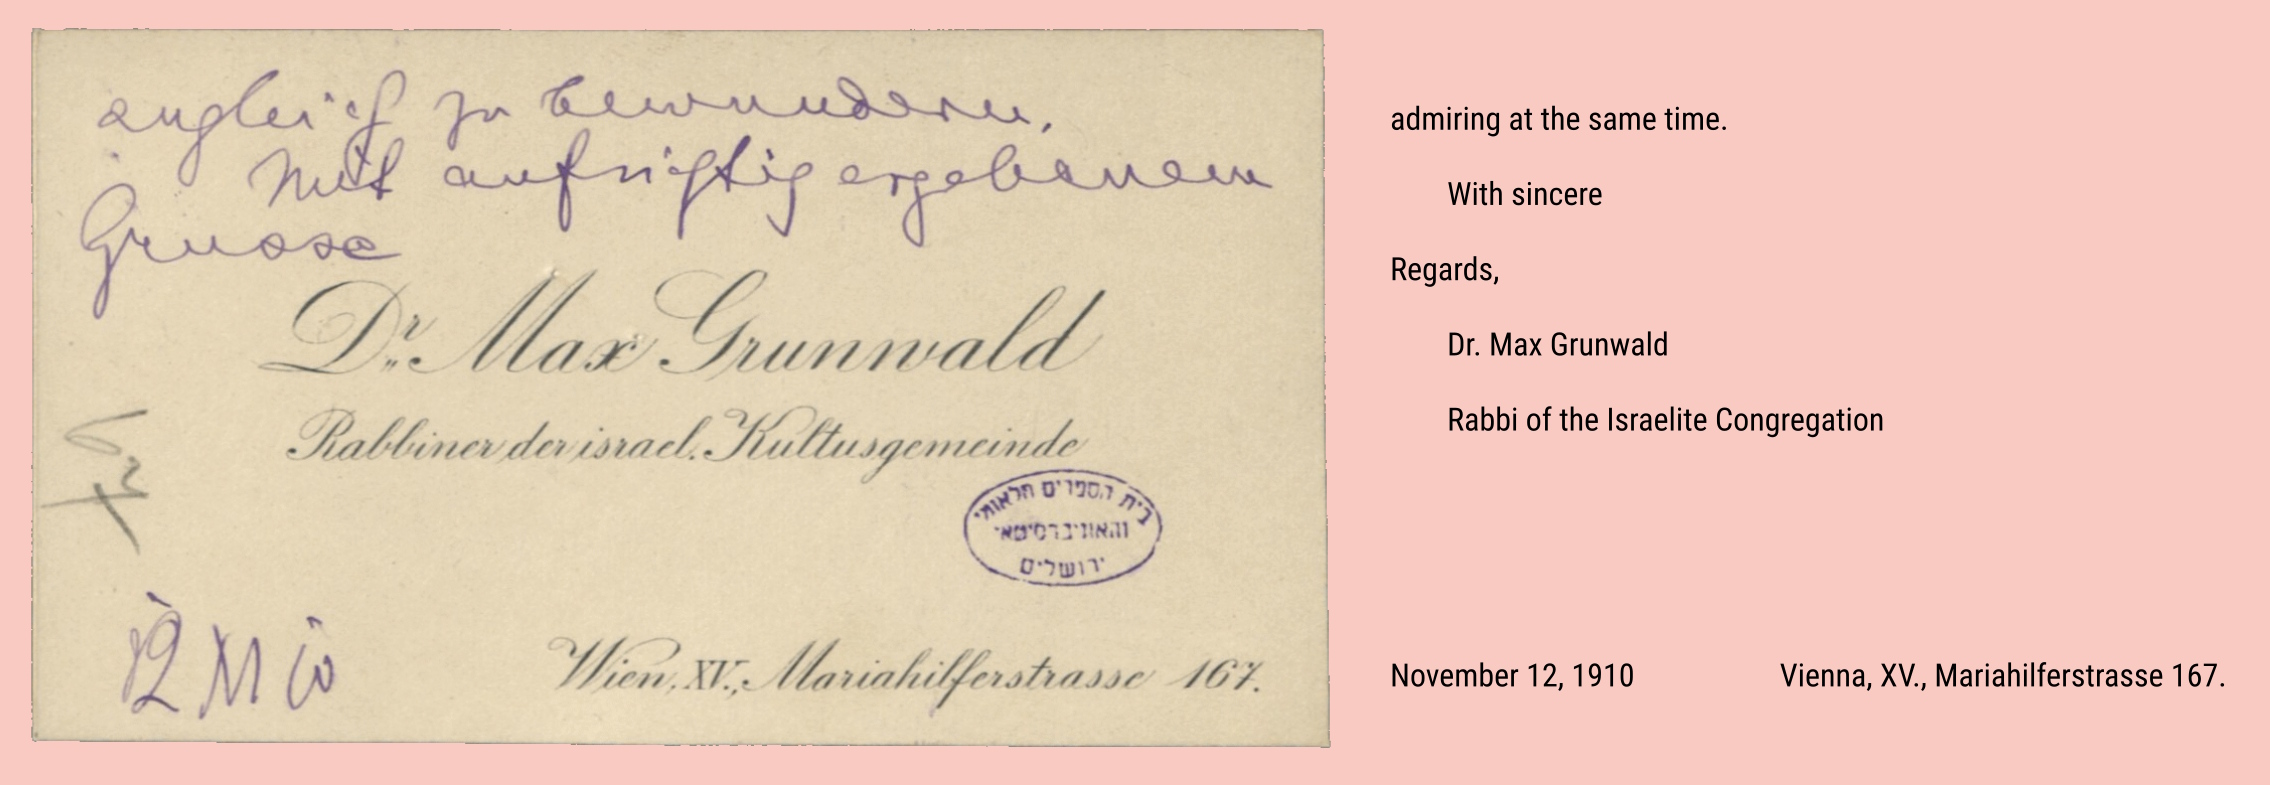 zugleich zu bewundern.
Mit aufrichtig ergebenem
Grusse
Dr. Max Grunwald
Rabbiner der israel. Kultusgemeinde
בית הספרים הלאומי
והאוניברסיטאי
ירושלים
12 XI 10
Wien, XV., Mariahilferstrasse 167.
admiring at the same time.
With sincere
Regards,
Dr. Max Grunwald
Rabbi of the Israelite Congregation
November 12, 1910 Vienna, XV., Mariahilferstrasse 167.